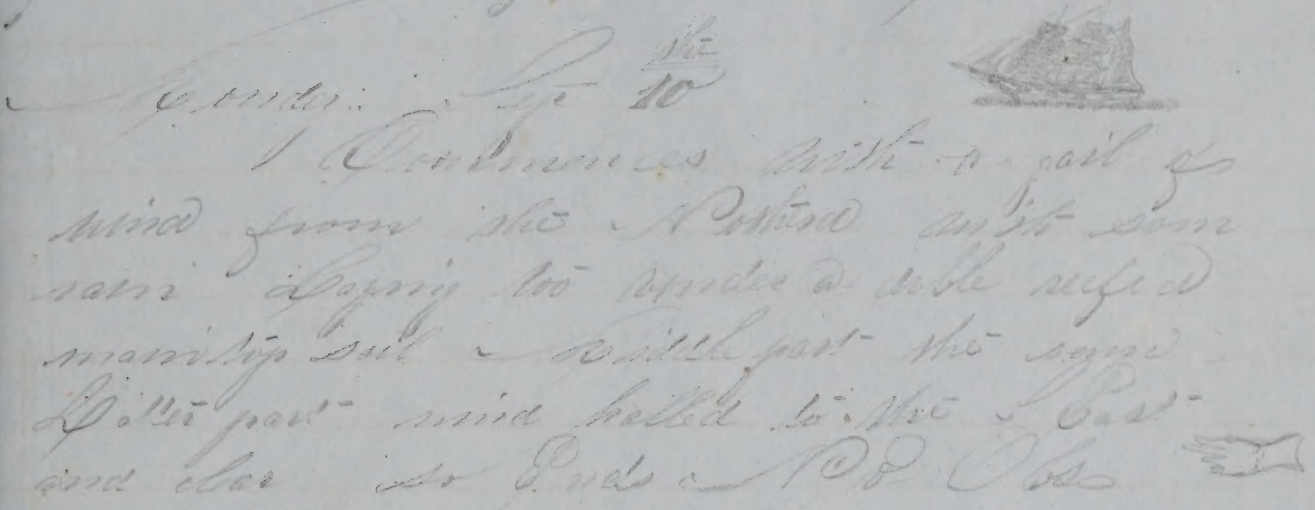 Monday Sep the 10
Commences with a gail of
wind from the Notherd with som
rain Laying too under a doble reefed
maintop sail Middle part the same
Latter part wind halled to the East
and clar so Ends No Obs